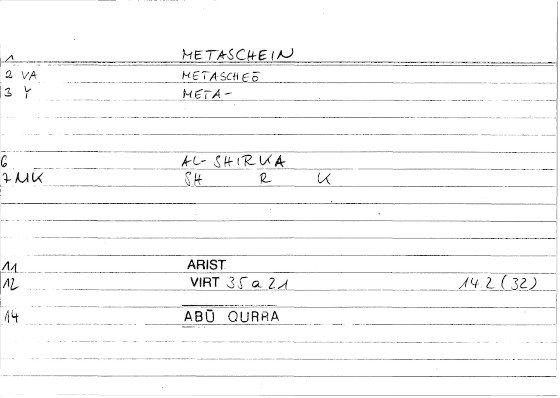 1 METASCHEIN
2 VA METASCHEŌ
3 Y META-
6 AL-SHIRKA
7 MK SH R K
11 ARIST.
12 VIRT 35 a 21 14.2 (32)
14 ABŪ QURRA